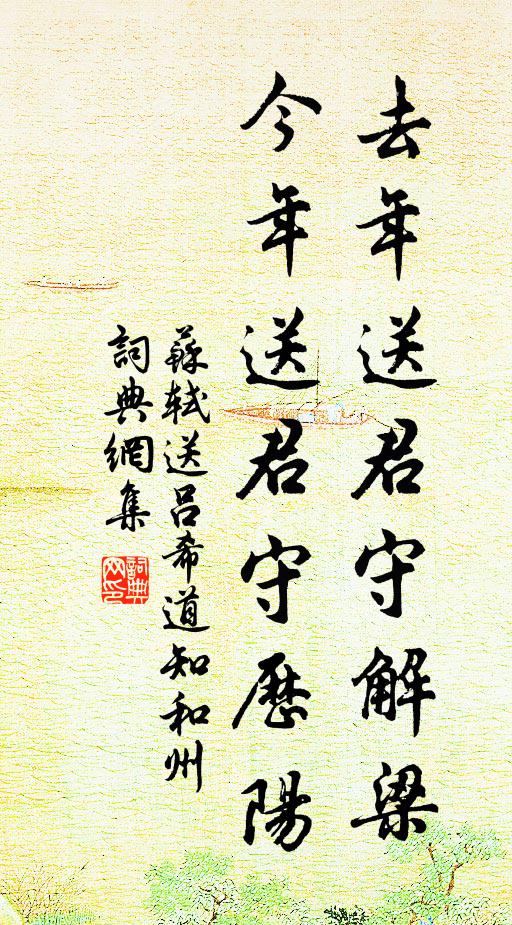 去年送君守解梁
今年送君守歷陽
蘇軾送呂希道知和州
詞典網集
詞典网印